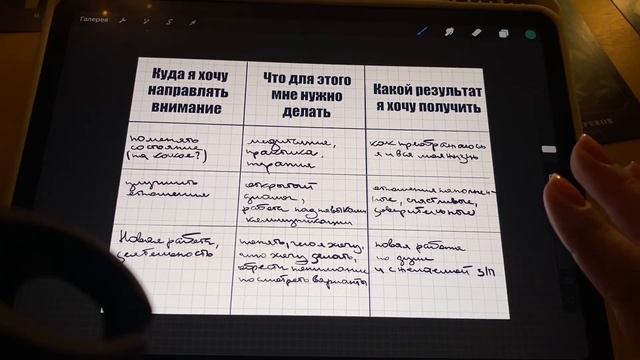 Галерея
Куда я хочу
направлять
внимание
Что для этого
мне нужно
делать
Какой результат
я хочу получить
поменять
состояние
(на какое?)
медитации,
практика,
терапия
как преображаюсь
я и вся моя жизнь
улучшить
отношения
открытый
диалог,
работа над навыками
коммуникации
отношения наполнен-
ные, счастливые,
доверительные
Новая работа,
деятельность
понять, чего я хочу,
что хочу делать,
обрести понимание
посмотреть варианты
новая работа
по душе
и с желаемой З/П